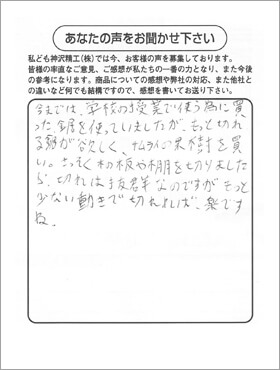 あなたの声をお聞かせ下さい
私ども神沢精工(株)では今、お客様の声を募集しております。
皆様の率直なご意見、ご感想が私たちの一番の力となり、また今後
の参考になります。商品についての感想や弊社の対応、また他社と
の違いなど何でも結構ですので、感想を書いてお送り下さい。
今までは、学校の授業で使う為に買
った鋸を使っていましたが、もっと切れ
る鋸が欲しく、サムライの果樹を買
い。さっそく木の板や棚を切りました
ら、切れは抜群なのですが、もっと
少ない動きで切れれば、楽です
ね。